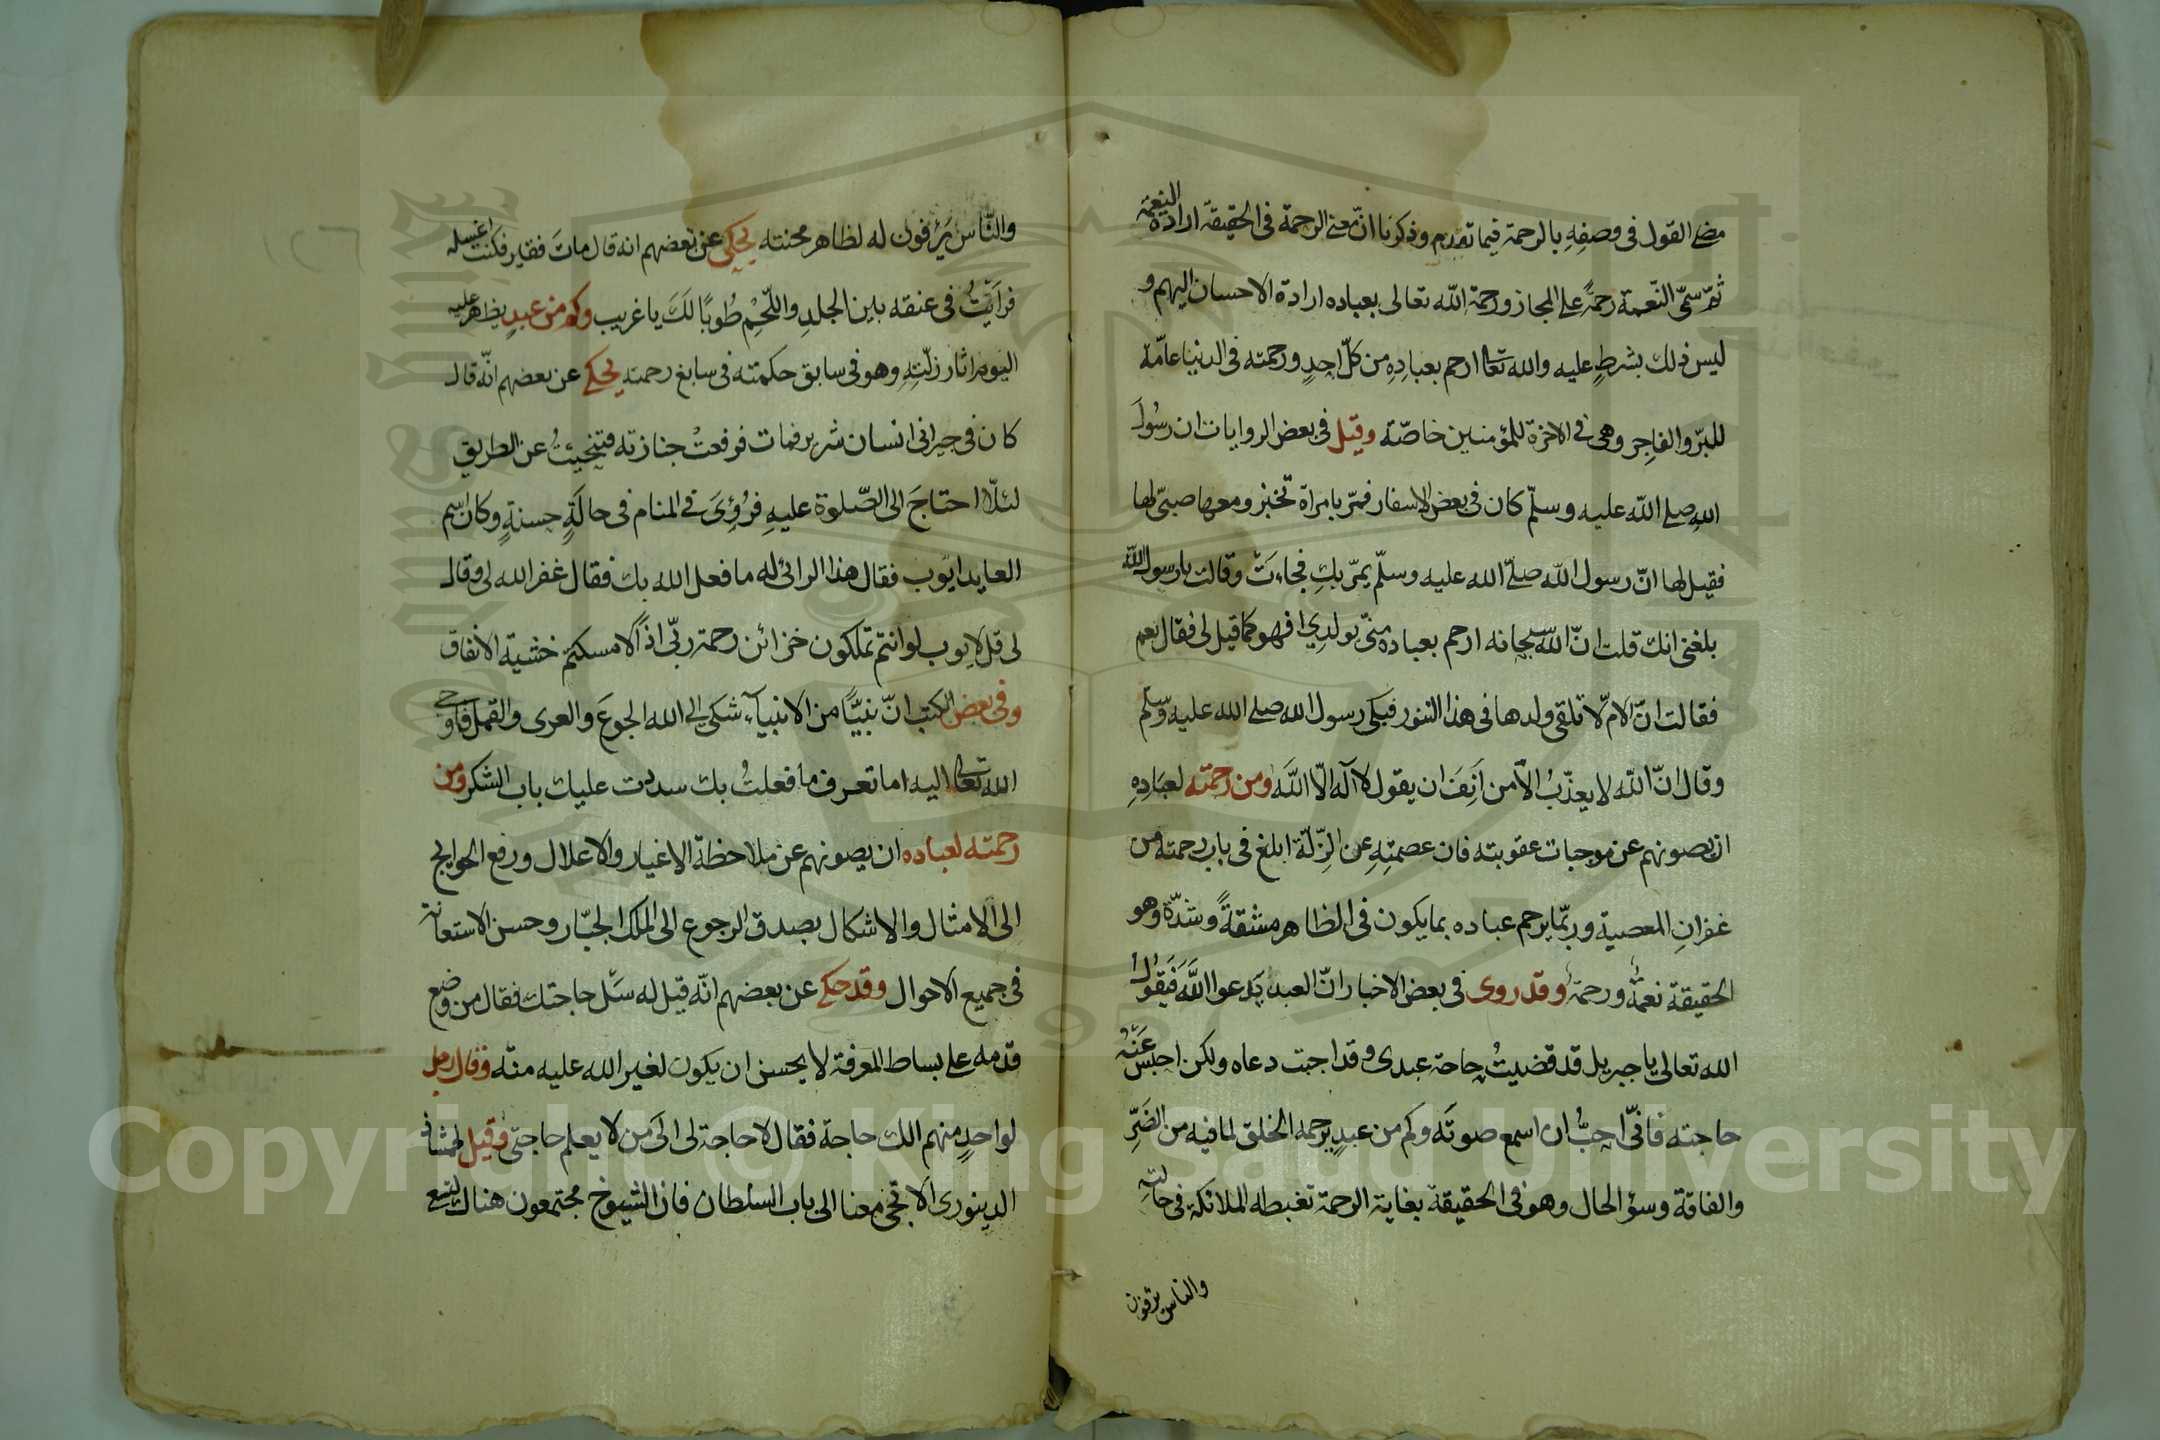 مضى القول فى وصفِهِ بالرحمة فيما تقدم وذكرنا انّ معنى الرحمة فى الحقيقة ارادة النعمة
ثمّ سمّى النّعمة رحمةً على المجاز ورحمة الله تعالى بعباده ارادة الاحسان اليهم و
ليس ذلك بشرطٍ عليه والله تعالى ارحم بعبادِهِ من كلّ احدٍ ورحمته فى الدنيا عامّة
للبرّ والفاجر وهى فى الاخرة للمؤمنين خاصّة وقيل فى بعض الروايات ان رسولَ
اللهِ صلى الله عليه وسلّم كان فى بعض الاسفار فمرّ بامراة تخبز ومعها صبىّ لها
فقيل لها انّ رسول الله صلّى الله عليه وسلّم يمرّ بكِ فجاءَتْ وقالت يا رسول الله
بلغنى انك قلت انّ الله سبحانه ارحم بعباده منّى بولدِى افهو كما قيل لى فقال نعم
فقالت انّ الامّ لا تلقى ولدها فى هذا التنور فبكى رسول الله صلى الله عليه وسلّم
وقال انّ الله لا يعذّبُ الّا من اَنِفَ ان يقول لا آله الّا اللهَ ومن رحمته لعبَادِهِ
ان يصونهم عن موجبات عقوبته فان عصمتِهِ عن الزّلّة ابلغ فى باب رحمته من
غفرانِ المعصية وربّما يرحم عباده بما يكون فى الظاهر مشقةً وشدّة وهو
الحقيقة نعمةٌ ورحمة وقد روى فى بعض الاخبار انّ العبد يَدعوا اللهَ فَيَقُولُ
الله تعالى يا جبريل قد قضيتُ حاجة عبدى وقد اجبت دعاه ولكن احبسْ عَنْهُ
حاجته فانّى احبُّ ان اسمع صوتَه وكم من عبدٍ يرحمه الخلق لما فيه من الضَرِّ
والفاقة وسؤ الحال وهو فى الحقيقة بغاية الرحمة تغبطه الملائكة فى حالتِهِ
والناس يرقون
والنّاس يَرفون له لظاهر محنته يحكى عن بعضهم انه قال ماتَ فقير فكنت اغسله
فرَاَيْتُ فى عنقه بين الجلدِ واللّحْمِ طُوبًا لَكَ يا غريب وكم من عبدٍ يظاهر عليه
اليوم اثار زلّتِهِ وهو فى سابق حكمته فى سابغ رحمته يحكى عن بعضهم انّه قال
كان فى جيرانى انسان شرير فمات فرفعتْ جنازته فتنحّيتُ عن الطريق
لئلّا احتاجَ الى الصّلوة عليهِ فرُؤِىَ فى المنام فى حالَةٍ حسنةٍ وكان اسم
العابد ايّوب فقال هذا الرائى له ما فعل الله بك فقال غفر الله لى وقال
لى قل لايوب لو انتم تملكون خزائن رحمة ربّى اذًا لامسكتم خشية الانفاق
وفى بعض الكتب انّ نبيًّا من الانبياء شكى الى الله الجوعَ والعرى والقمل فاوحى
الله تعالى اليه اما تعرف ما فعلتُ بك سددت عليك باب الشكر ومن
رحمته لعباده ان يصونهم عن ملاحظة الاغيار والاعلال ورفع الحوايج
الى الامثال والاشكال بصدق الرجوع الى الملك الجبّار وحسن الاستعانة
فى جميع الاحوال وقد حكى عن بعضهم انّه قيل له سَل حاجتك فقال من وضع
قدمه على بساط المعرفة لا يحسن ان يكون لغير الله عليه منّه وقال رجل
لواحدٍ منهم الك حاجة فقال لا حاجة لى الى من لا يعلم حاجتى وقيل لممشاد
الدينورى الا تجى معنا الى باب السلطان فان الشيوخ مجتمعون هناك
Copyright © King Saud University
1957